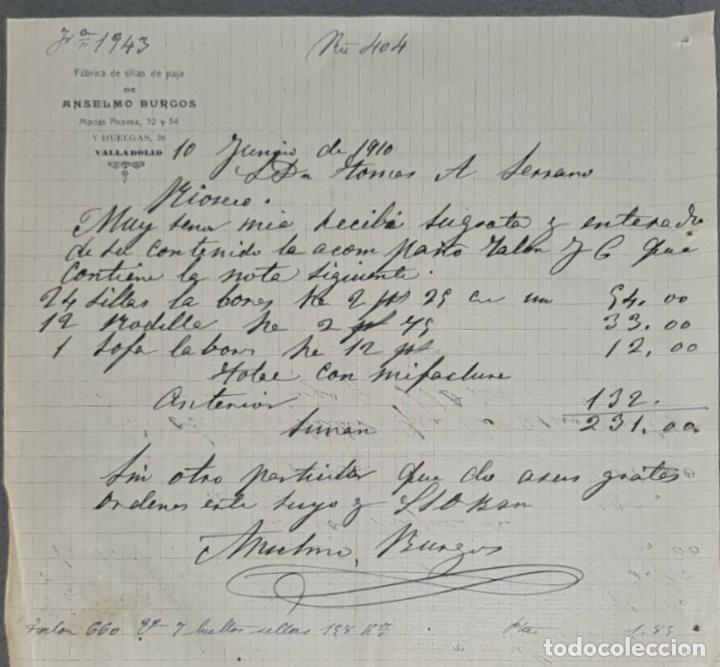 Fra 1943
Nu 404
Fábrica de sillas de paja
DE
ANSELMO BURGOS
Macias Picavea, 52 y 54
Y HUELGAS, 38
VALLADOLID
10 Junio de 1910
Sr Dn Tomas A Serrano
Rioseco.
Muy señor mio recibi sugrata y enterado
de su contenido la acompaño talon y que
contiene la nota siguiente.
24 sillas labores he 2 pts 25 cn un 54.00
12 Rodilla he 2 pts 75 33.00
1 sofa labores he 12 pts 12,00
Total con mifacture
Anterior 132.
Suman 231.00
Sin otro particular que do asus gratas
ordenes este suyo y
Anselmo, Burgos
Talon 660 7 bultos sillas 158 1.85
todocoleccion